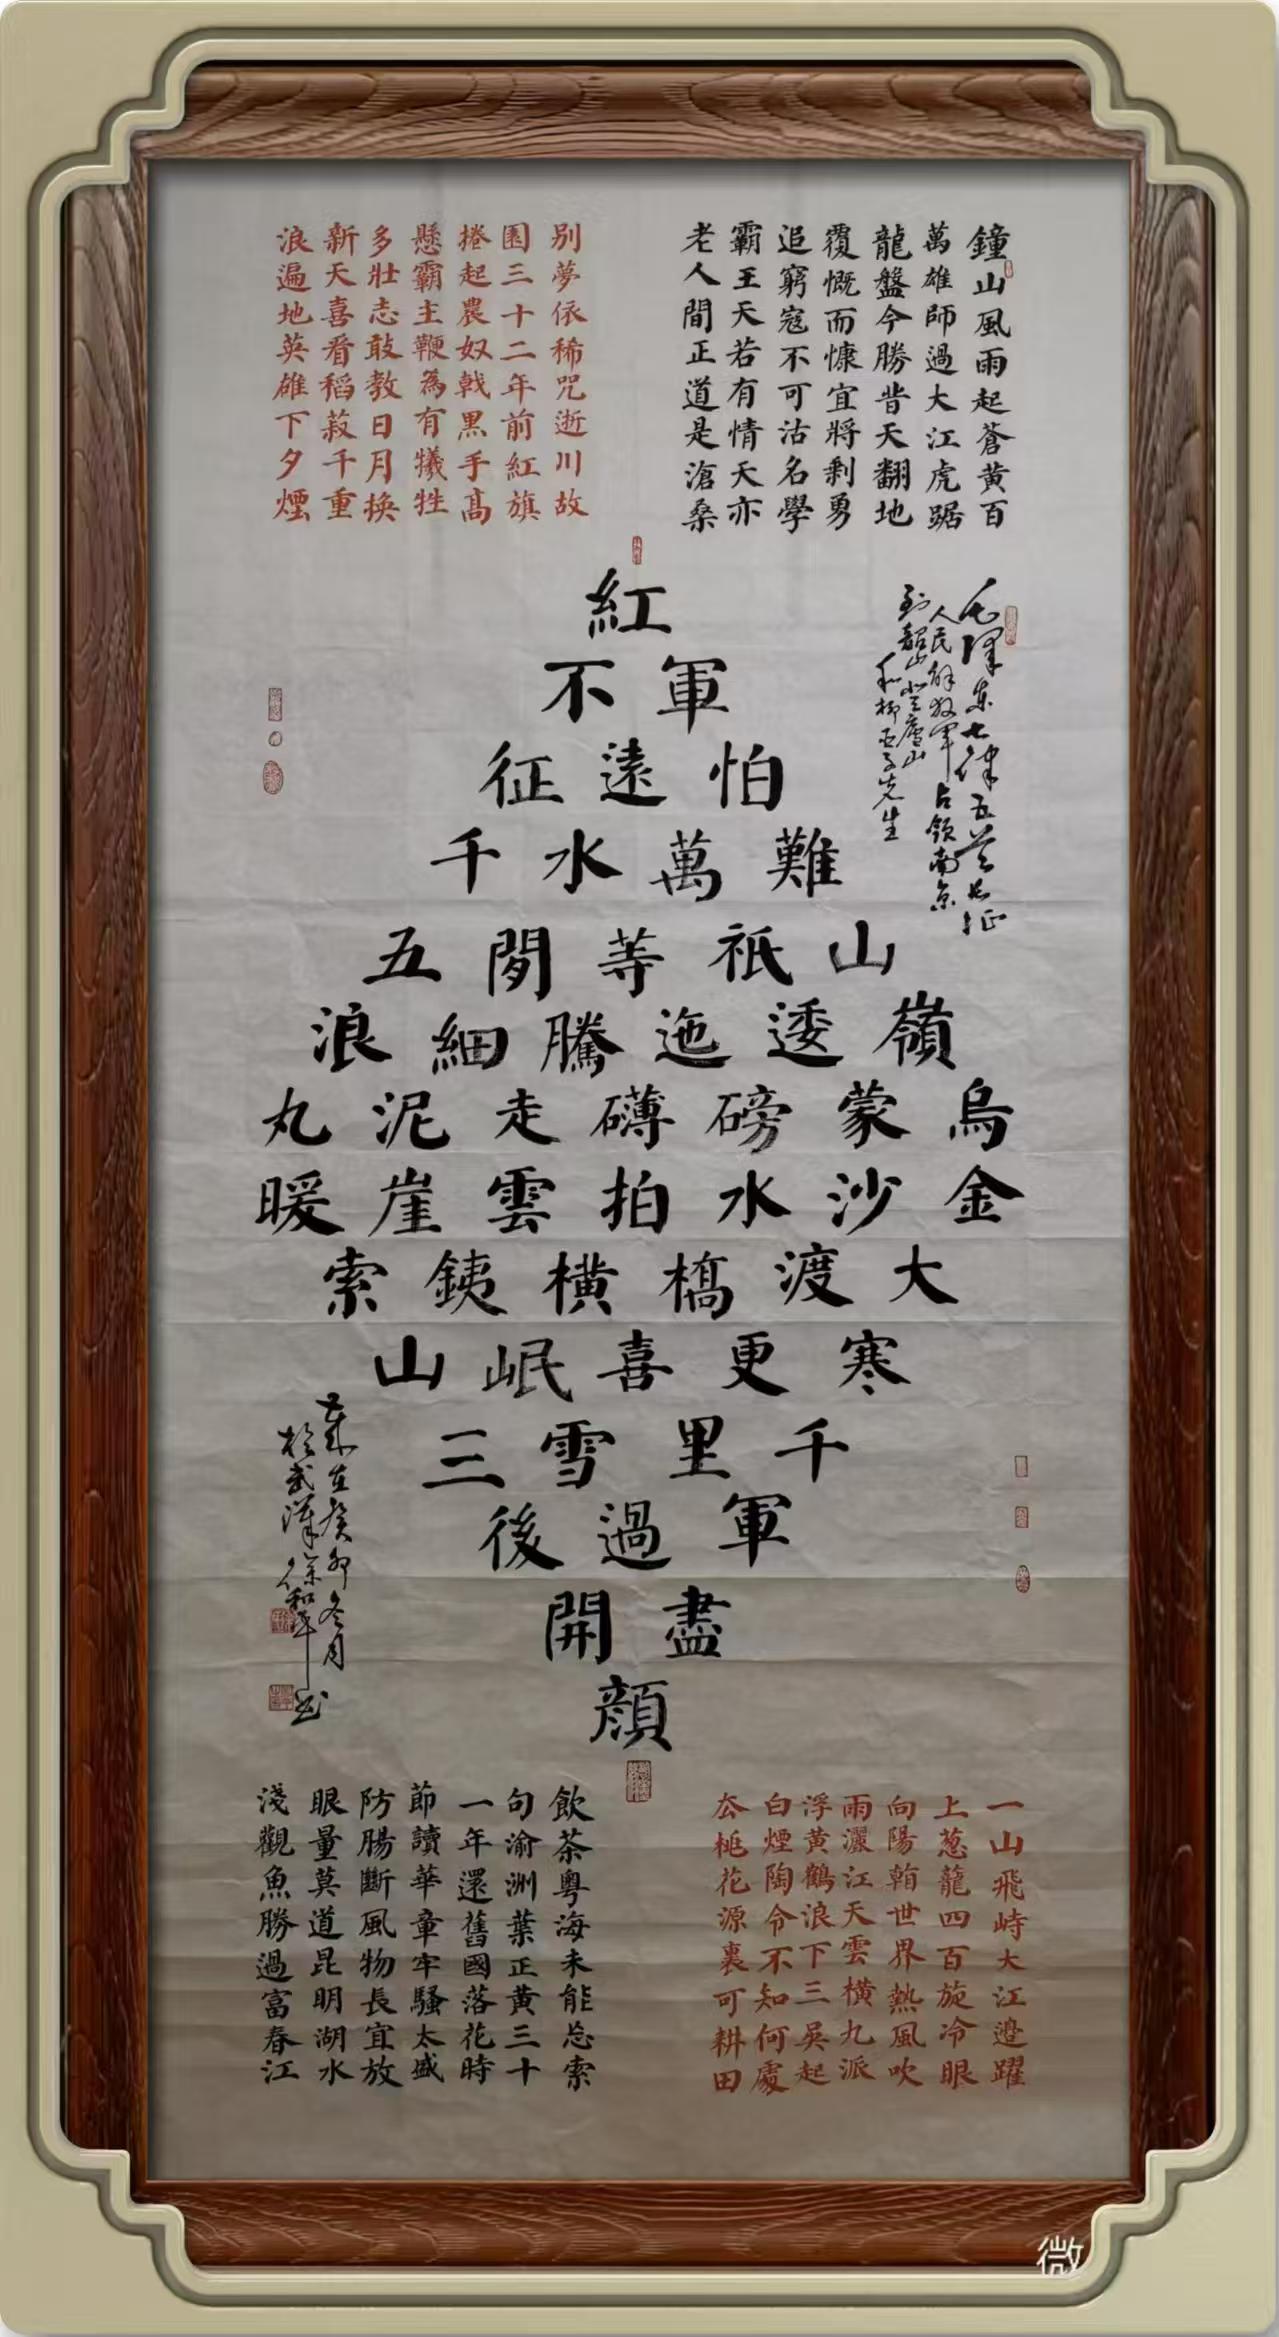 鐘山風雨起蒼黃百
萬雄師過大江虎踞
龍盤今勝昔天翻地
覆慨而慷宜將剩勇
追窮寇不可沽名學
霸王天若有情天亦
老人間正道是滄桑
別夢依稀咒逝川故
園三十二年前紅旗
捲起農奴戟黑手高
懸霸主鞭為有犧牲
多壯志敢教日月換
新天喜看稻菽千重
浪遍地英雄下夕煙
毛澤東七律五首長征
人民解放軍占領南京
到韶山登廬山
和柳亞子先生
紅
軍不
怕遠征
難萬水千
山祇等閒五
嶺逶迤騰細浪
烏蒙磅礴走泥丸
金沙水拍雲崖暖
大渡橋橫銕索
寒更喜岷山
千里雪三
軍過後
盡開
顏
歲在癸卯冬月
於武漢徐和平書
一山飛峙大江邊躍
上葱龍四百旋冷眼
向陽看世界熱風吹
雨灑江天雲橫九派
浮黃鶴浪下三吳起
白煙陶令不知何處
厺桃花源裏可耕田
飲茶粵海未能忘索
句渝洲葉正黃三十
一年還舊國落花時
節讀華章牢騷太盛
防腸斷風物長宜放
眼量莫道昆明湖水
淺觀魚勝過富春江
微